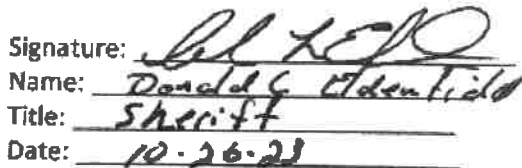 Signature:
Name: Donald C Oldenfield
Title: Sheriff
Date: 10-26-23